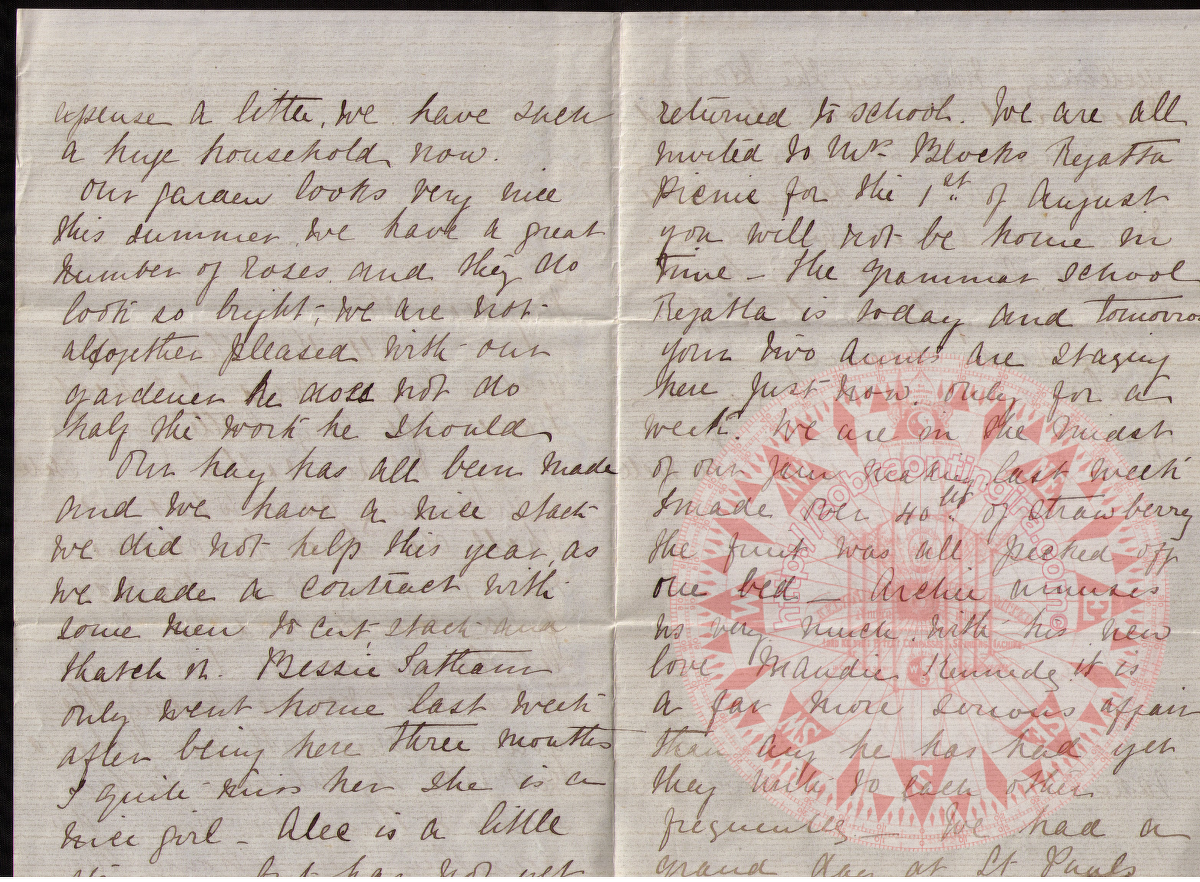 expense a little, We have such
a huge household now.
Our garden looks very nice
this summer. We have a great
number of roses and they do
look so bright; We are not
altogether pleased with our
gardener he does not do
half the work he should
Our hay has all been made
and we have a nice stack
we did not help this year, as
we made a contract with
some men to cut stack and
thatch it. Bessie Latham
only went home last week
after being here three months
I quite miss her she is a
nice girl - Alec is a little
has not yet
returned to school. We are all
invited to Mrs Blocks Regatta
Picnic for the 1st of August
you will not be home in
time - The grammar school
Regatta is today and tomorrow
your two aunts are staying
here just now. only for a
week. We are in the midst
of our jam making last week
I made over 40 lbs of strawberry
the fruit was all picked off
one bed - Archie amuses
us very much, with his new
love Maudie Kennedy it is
a far more serious affair
than any he has had yet
they write to each other
frequently - We had a
grand day at St Pauls